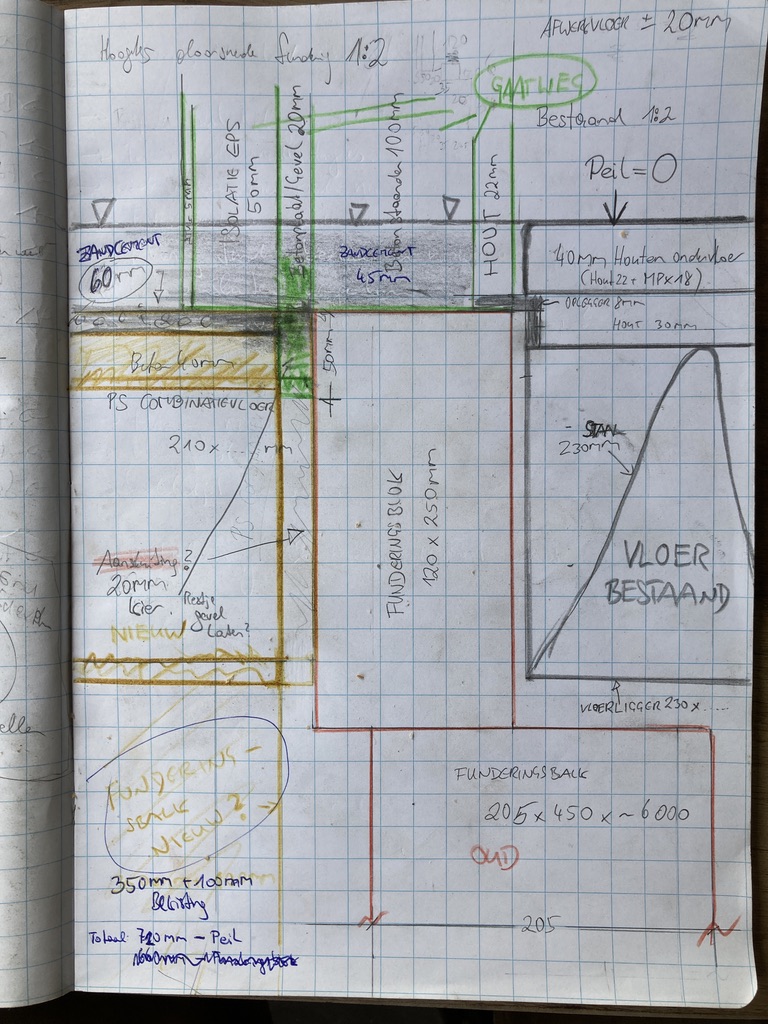 AFWERKVLOER ± 20mm
fundering 1:2
GAAT WEG
Bestaand 1:2
Peil = 0
ISOLATIE EPS
50mm
Betonplaat/Gevel 20mm
Beton staander 100mm
HOUT 22mm
ZANDCEMENT
60mm
ZANDCEMENT
45mm
40mm Houten ondervloer
(Hout 22 + MPX 18)
OPLEGGER 8mm
HOUT 30mm
Beton 40mm
50mm
PS COMBINATIEVLOER
210 x ...... mm
PS
STAAL
230mm
FUNDERINGSBLOK
120 x 250mm
VLOER
BESTAAND
Aansluiting?
20mm
kier.
Restje
gevel
laten?
NIEUW
VLOERLIGGER 230 x ......
FUNDERING-
SBALK
NIEUW?
FUNDERINGSBALK
205 x 450 x ~ 6000
OUD
350mm + 100mm
Bekisting
205
Totaal: 710mm - Peil